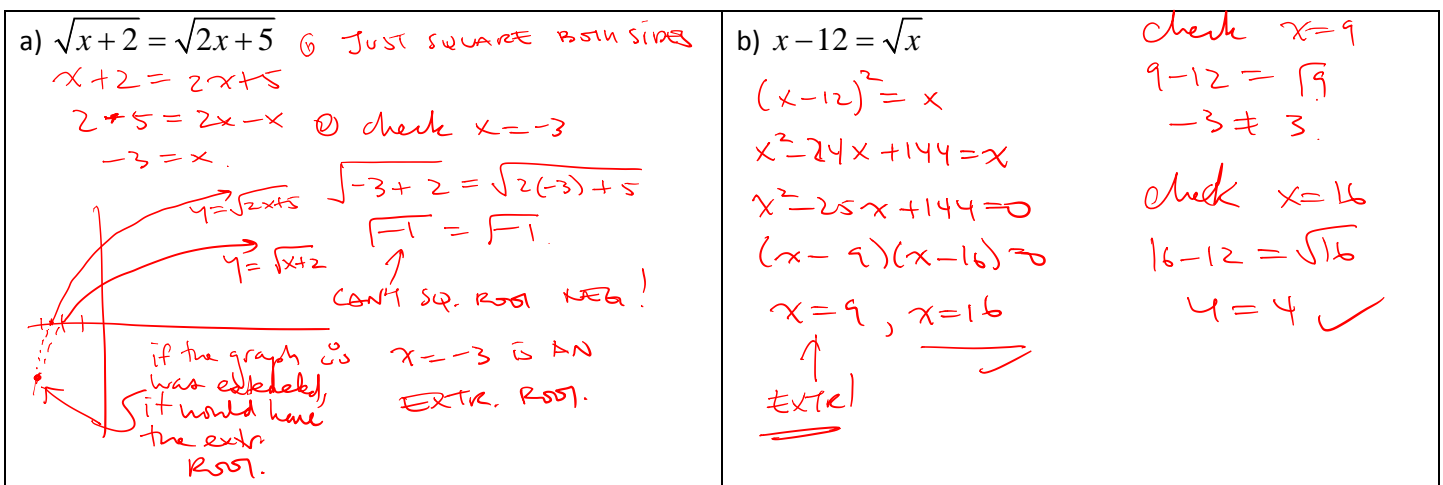 a) √x+2 = √2x+5 ① JUST SQUARE BOTH SIDES
x+2 = 2x+5
2-5 = 2x-x ② check x=-3
-3 = x.
√-3+2 = √2(-3)+5
√-1 = √-1.
CAN'T SQ. ROOT NEG!
y=√2x+5
y=√x+2
if the graph
was extended,
it would have
the extr.
ROOT.
∴ x=-3 is AN
EXTR. ROOT.
b) x-12 = √x
(x-12)² = x
x²-24x+144=x
x²-25x+144=0
(x-9)(x-16)=0
x=9, x=16 ✓
EXTR
check x=9
9-12 = √9
-3 ≠ 3.
check x=16
16-12 = √16
4=4 ✓